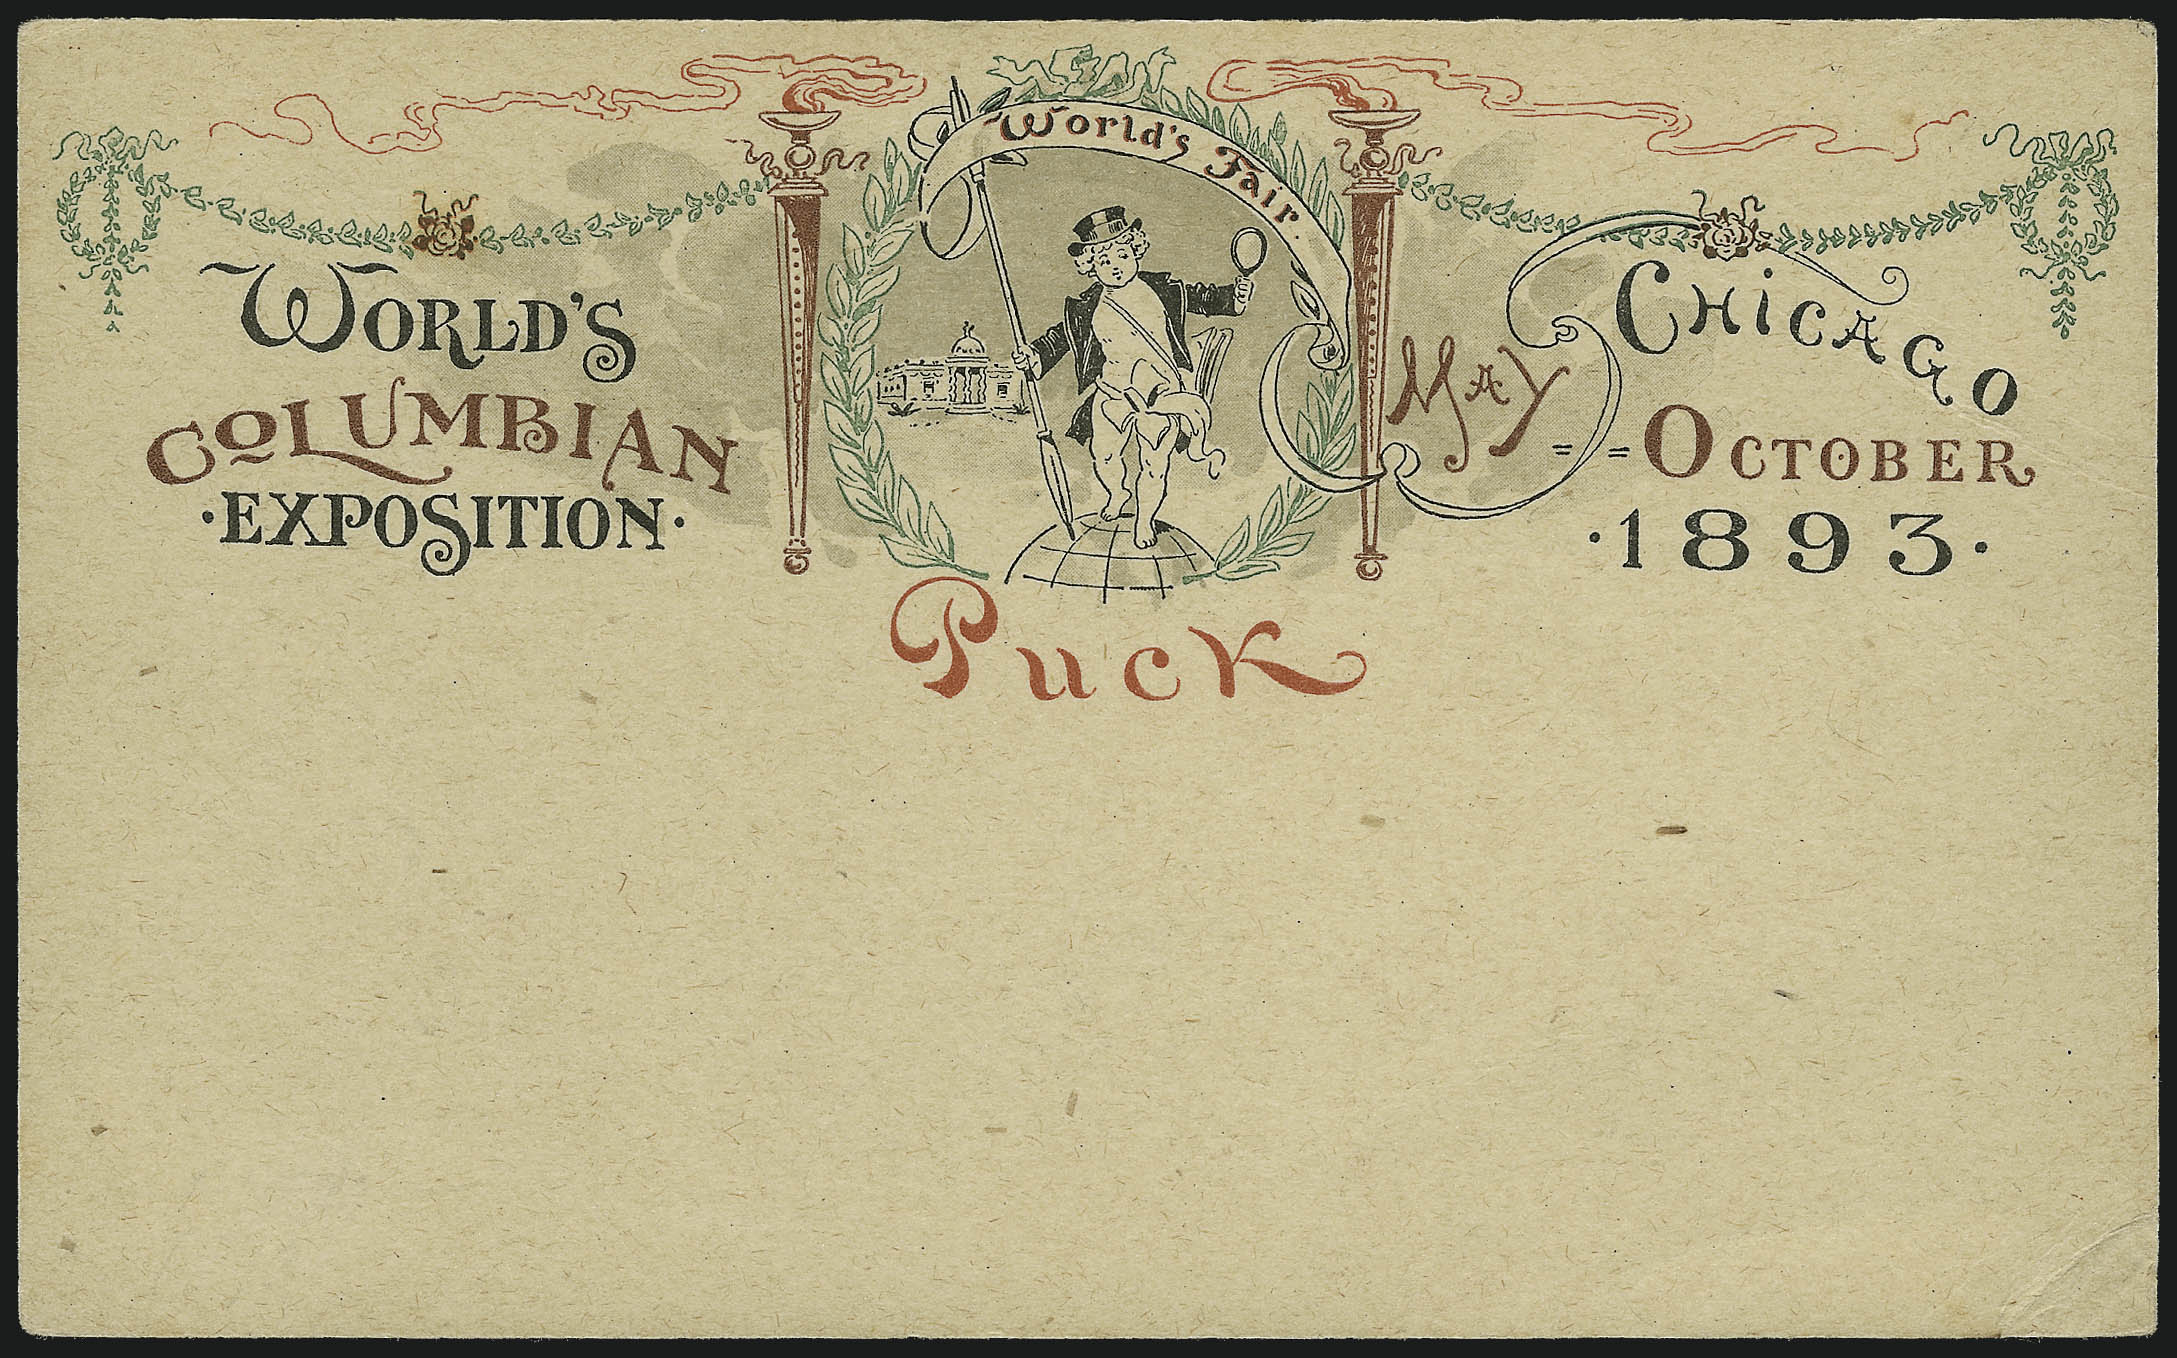 World's Fair.
WORLD'S
COLUMBIAN
·EXPOSITION·
CHICAGO
MAY = = OCTOBER
·1893·
PUCK